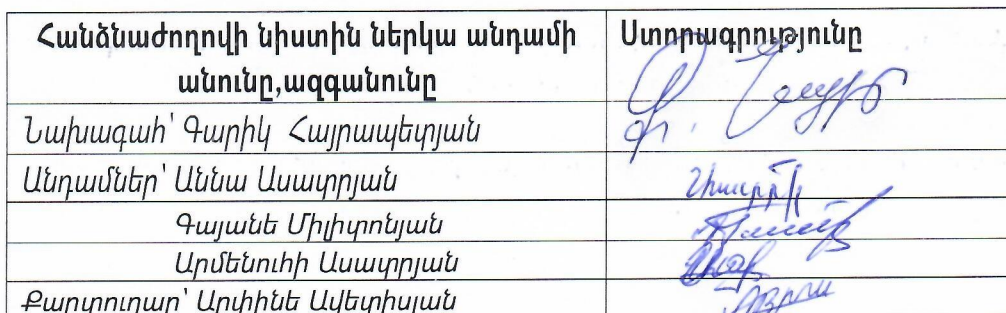 Հանձնաժողովի նիստին ներկա անդամի
անունը,ազգանունը
Ստորագրությունը
Նախագահ՝ Գարիկ Հայրապետյան
Անդամներ՝ Աննա Ասատրյան
Գայանե Միլիտոնյան
Արմենուհի Ասատրյան
Քարտուղար՝ Արփինե Ավետիսյան